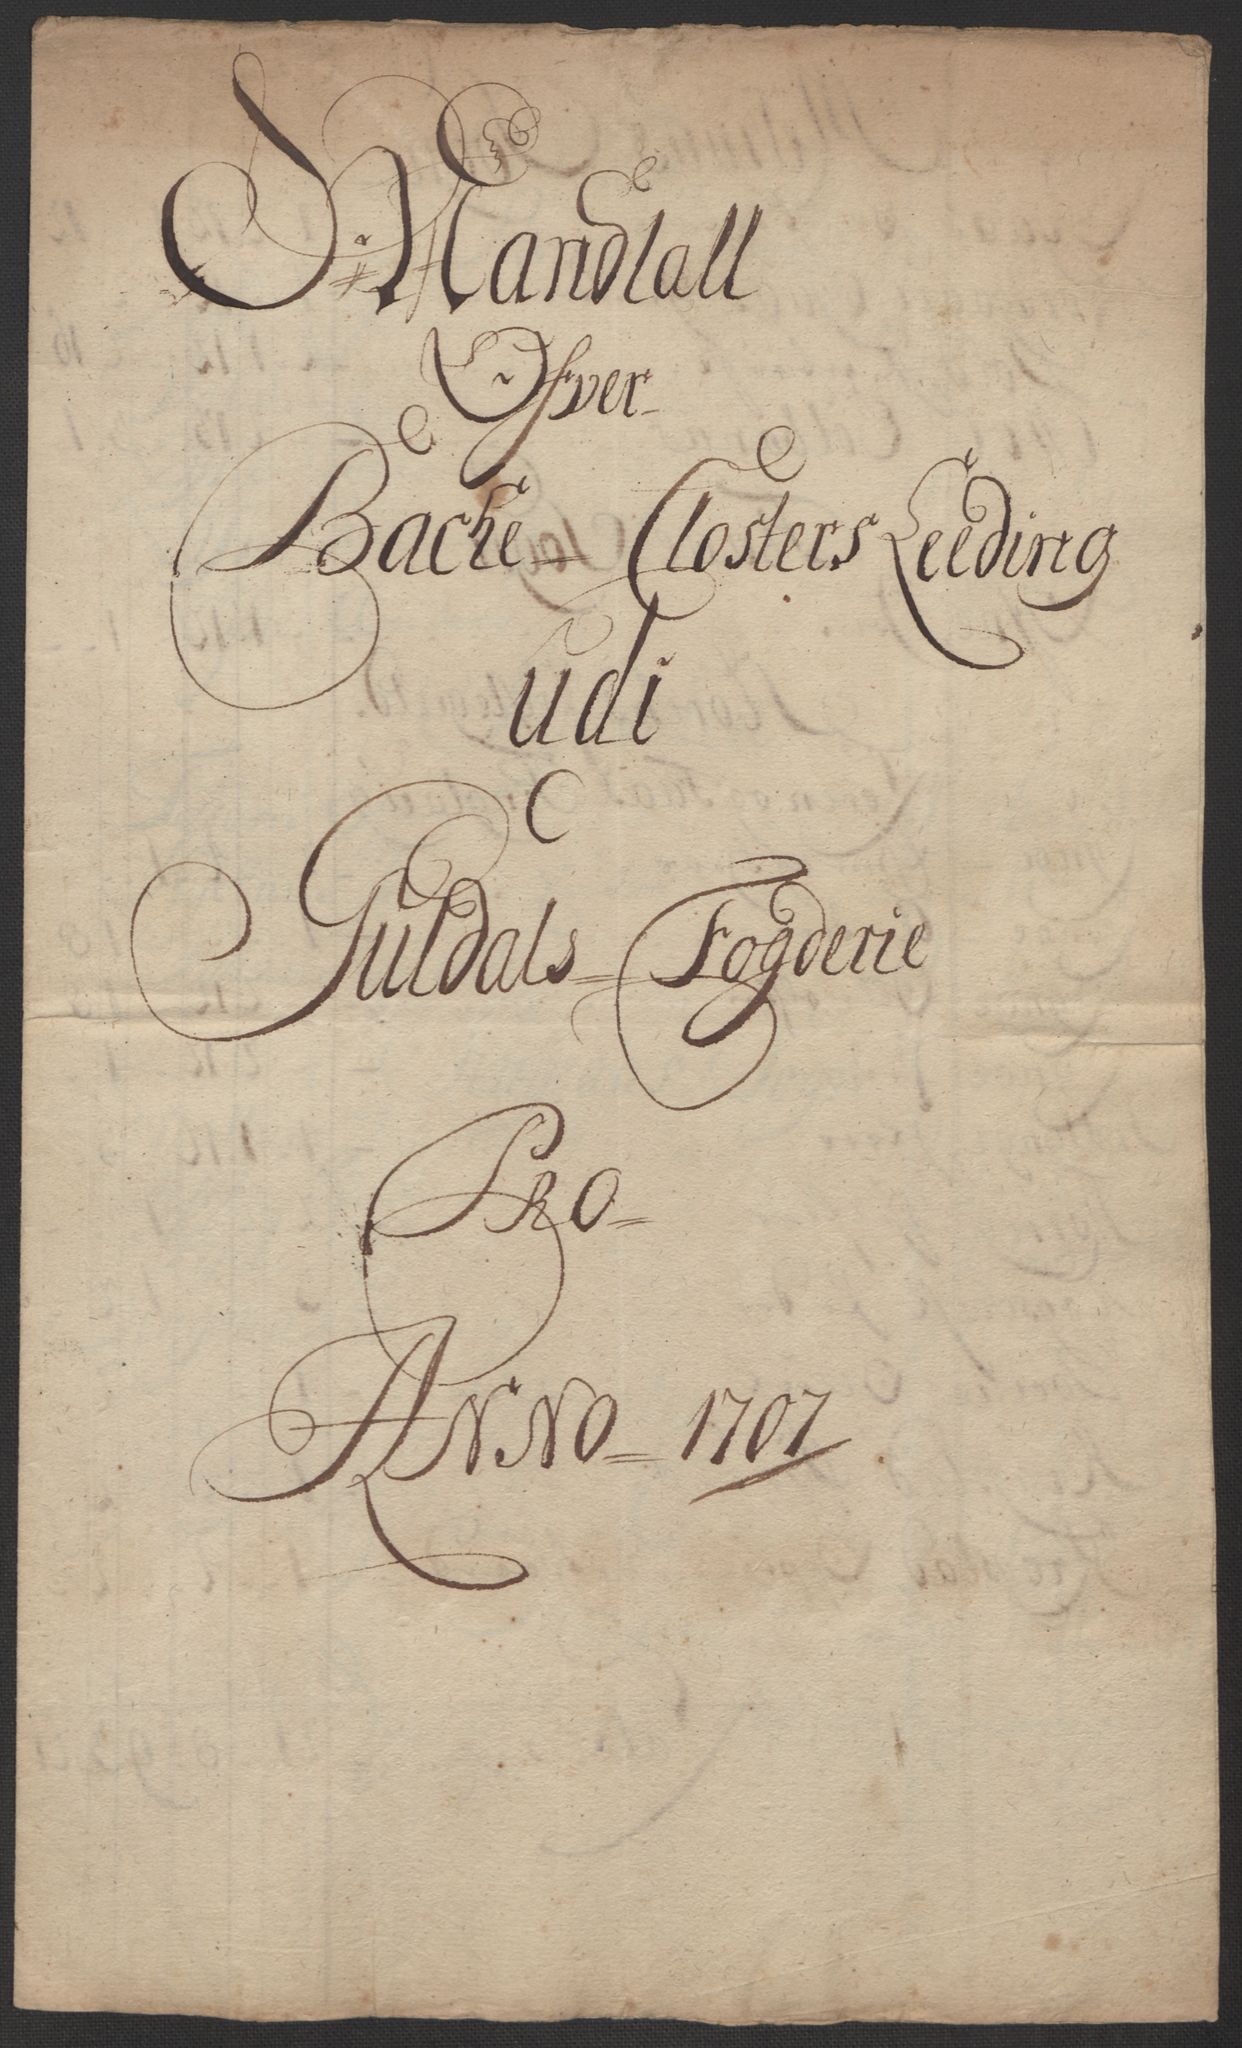 Mandtall
Ofver
Bache Closters Leeding
udi
Guldals Fogderie
Pro
Anno 1707